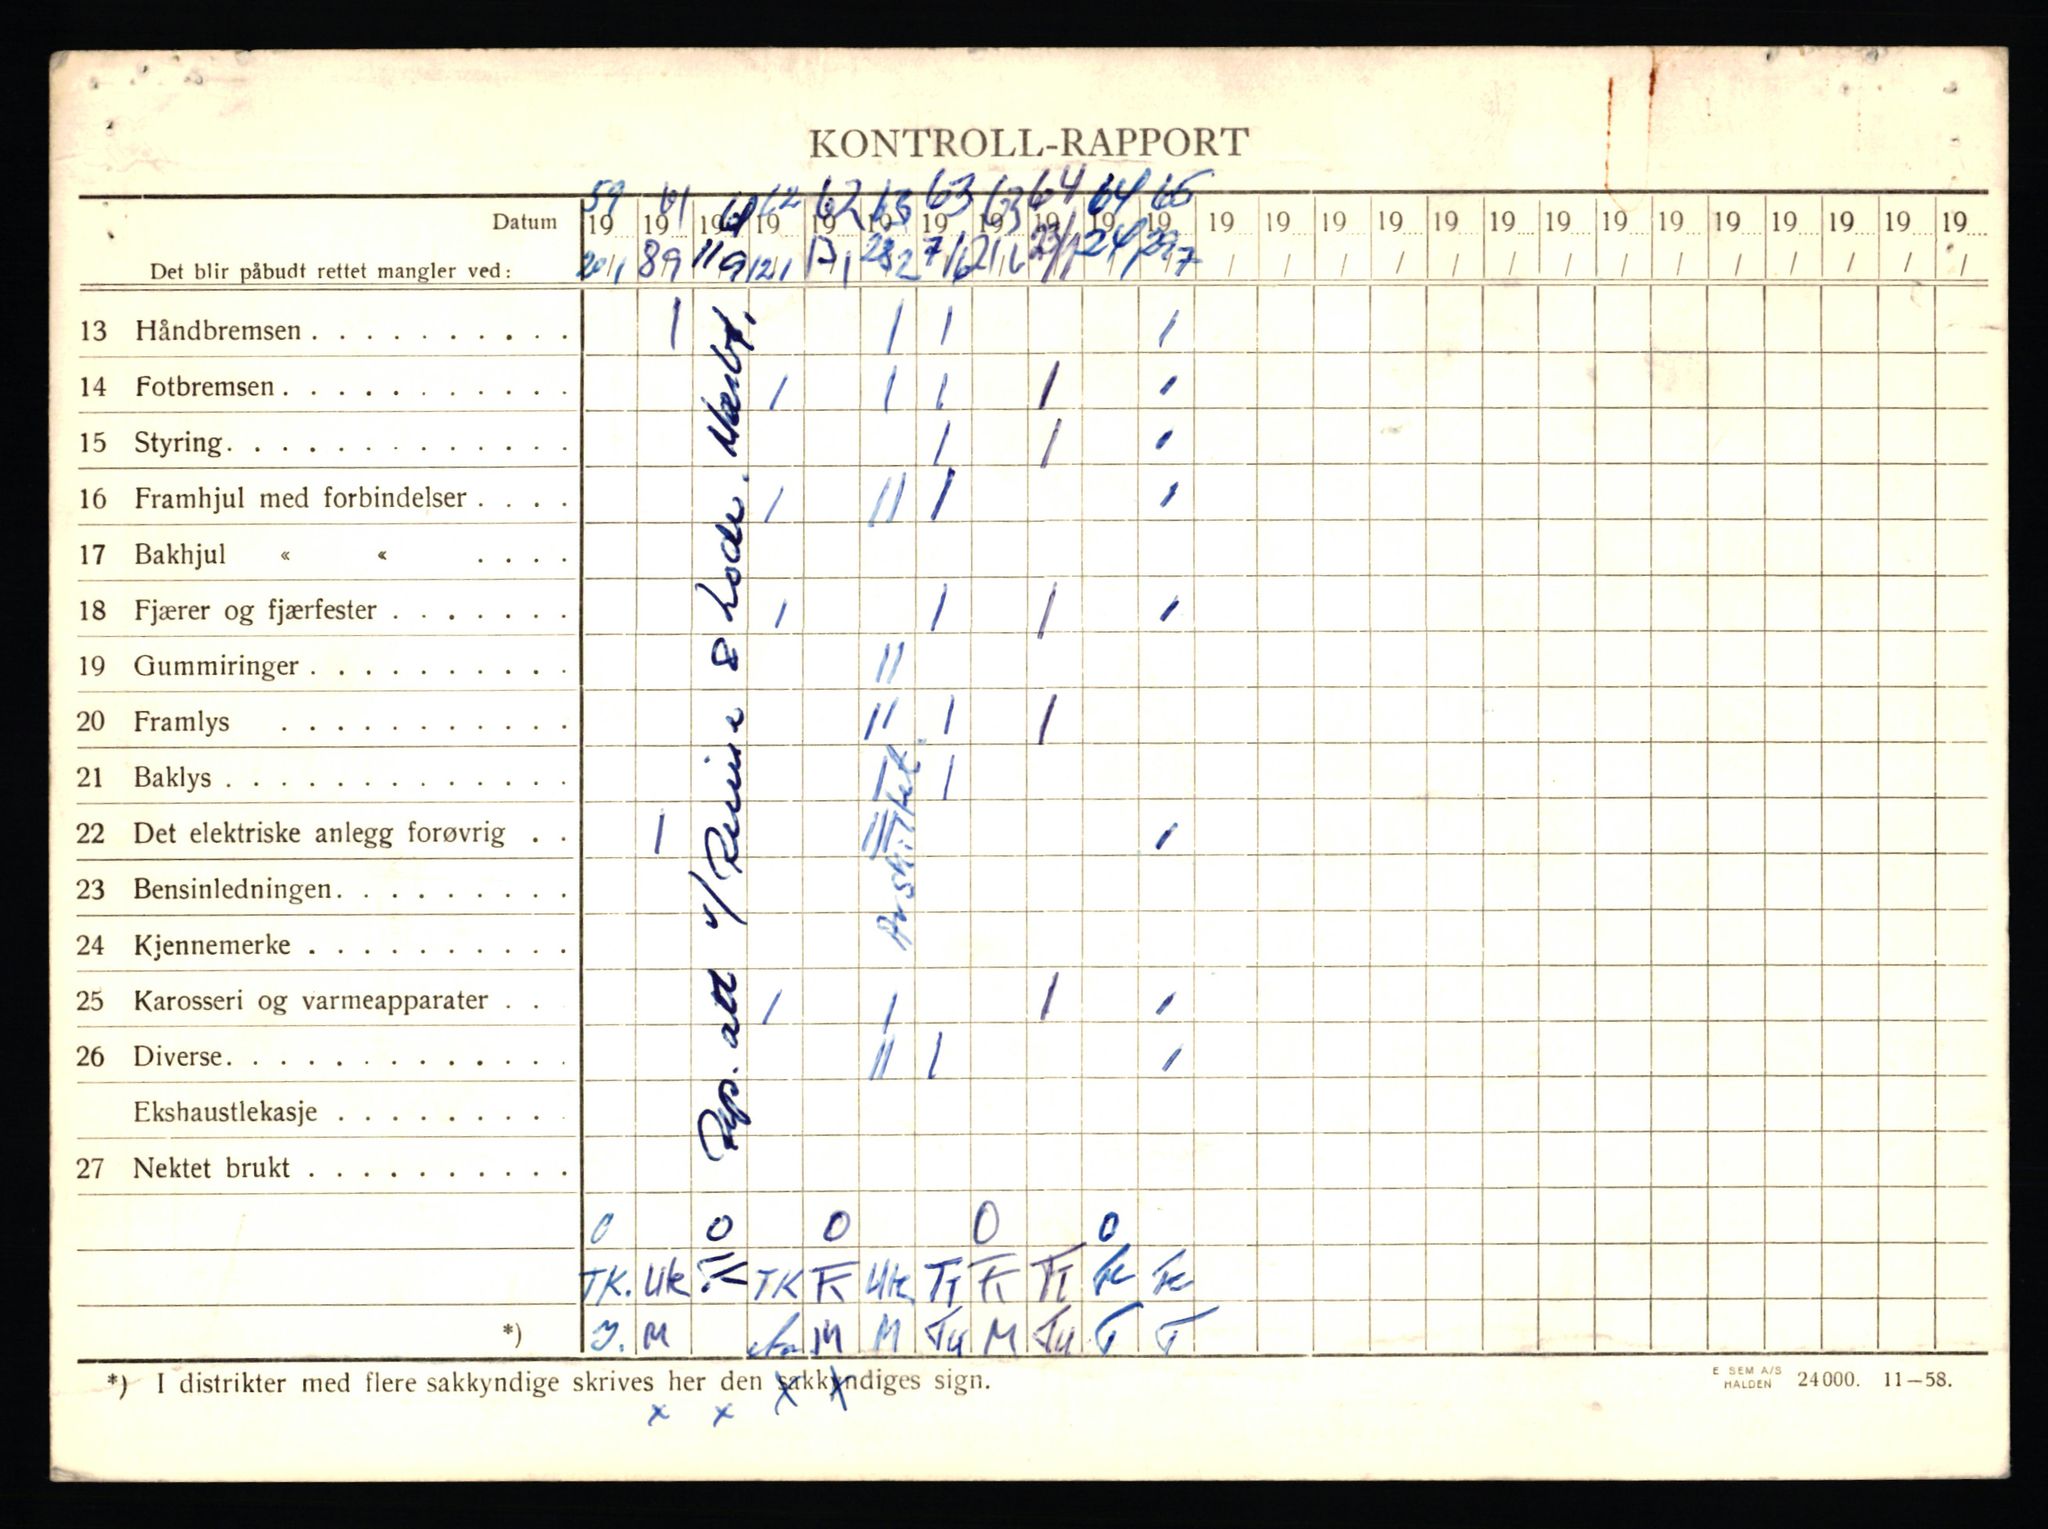 KONTROLL-RAPPORT
59 61 61 62 62 63 63 63 64 64 65
Datum 19 19 19 19 19 19 19 19 19 19 19 19 19 19 19 19 19 19 19 19 19 19 19 19 19
Det blir påbudt rettet mangler ved: 20/1 8/9 11/9 12/1 17/1 28/2 7/6 21/6 23/1 24/1 29/7 / / / / / / / / / / / / / /
13 Håndbremsen . . . . . . . . . . | | | |
14 Fotbremsen . . . . . . . . . . . | | | | |
15 Styring . . . . . . . . . . . . . | | |
16 Framhjul med forbindelser . . . . | || | |
17 Bakhjul « « . . . .
18 Fjærer og fjærfester . . . . . . . | | | |
19 Gummiringer . . . . . . . . . . ||
20 Framlys . . . . . . . . . . . || | |
21 Baklys . . . . . . . . . . . . . | |
22 Det elektriske anlegg forøvrig . . | ||| |
23 Bensinledningen . . . . . . . . .
24 Kjennemerke . . . . . . . . . .
25 Karosseri og varmeapparater . . . | | | |
26 Diverse . . . . . . . . . . . . . || | |
Ekshaustlekasje . . . . . . . . .
27 Nektet brukt . . . . . . . . . .
Rep. att v/ Reime 8 Lode.
Avskiltet.
0 0 0 0 0
TK. Uk TK TK Fk Uk TT Fk TT Tk Tk
*) M M M Tu M Tu T T
*) I distrikter med flere sakkyndige skrives her den sakkyndiges sign.
x x x x
E SEM A/S
HALDEN 24000. 11-58.